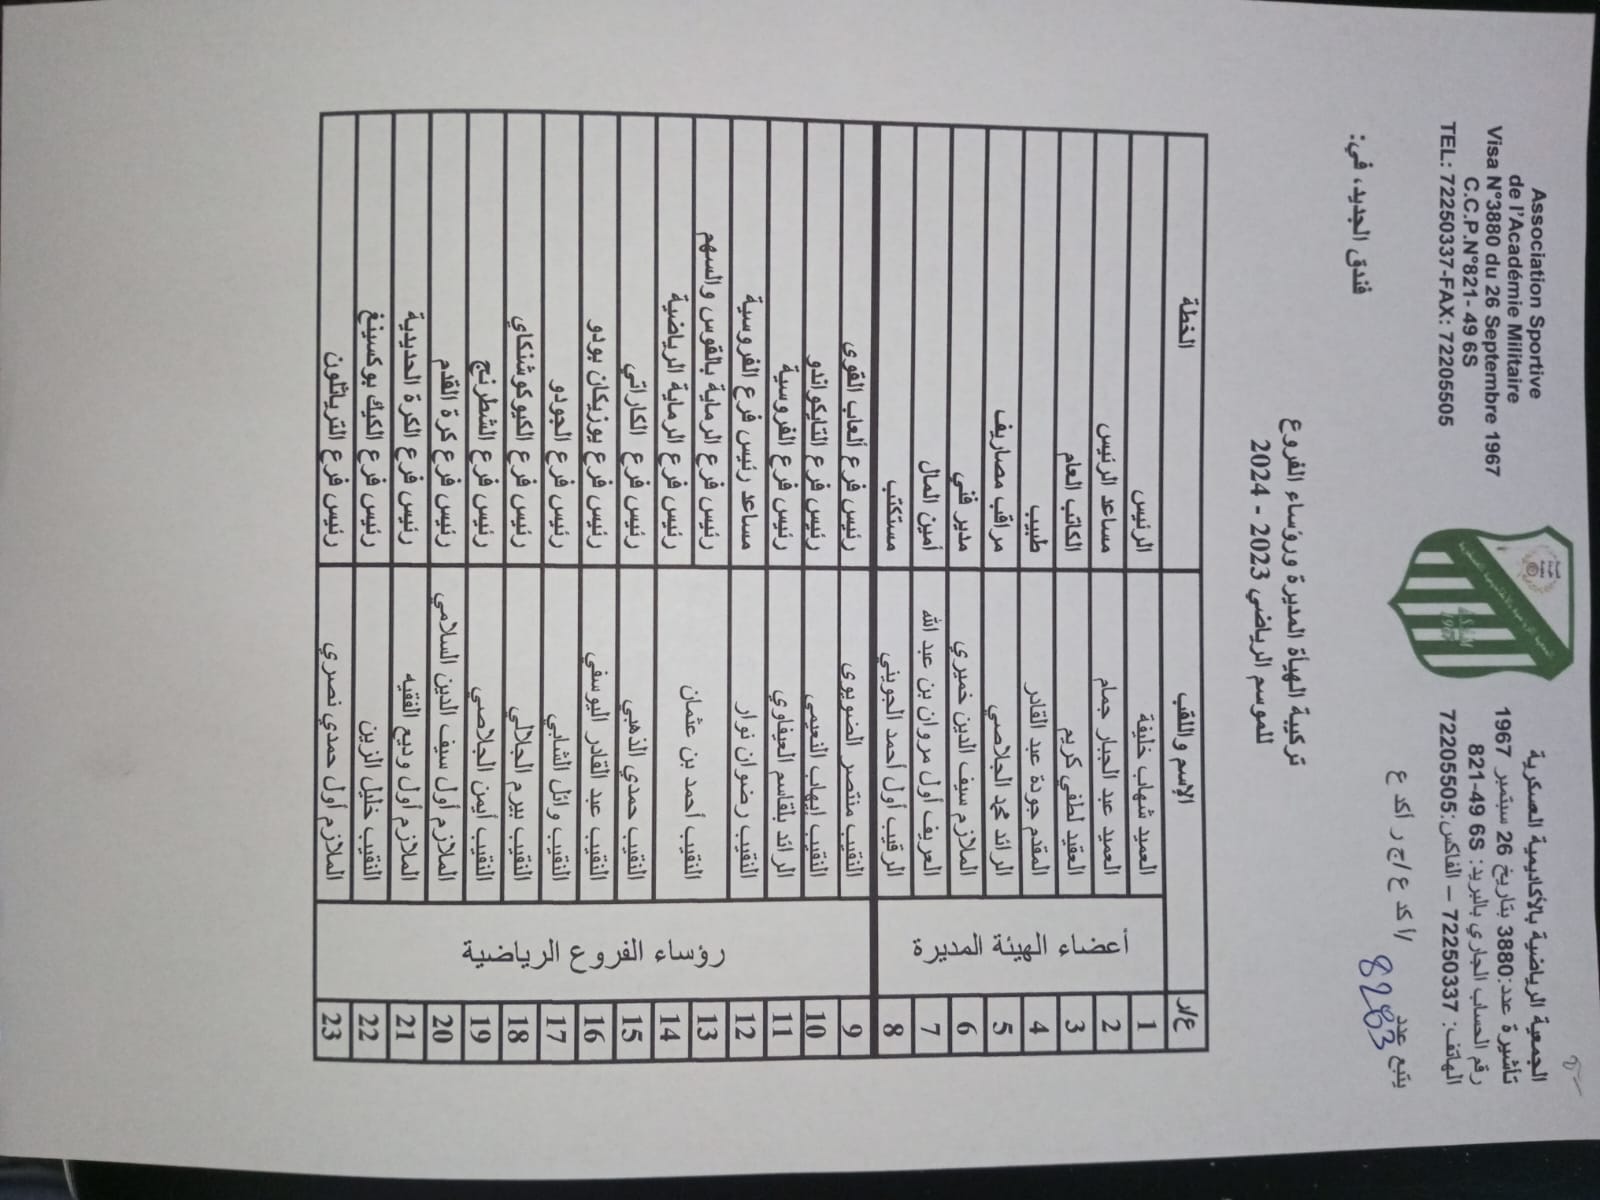 Association Sportive
de l'Académie Militaire
Visa N°3880 du 26 Septembre 1967
C.C.P.N°821- 49 6S
TEL: 72250337-FAX: 72205505
الجمعية الرياضية بالأكاديمية العسكرية
تأشيرة عدد:3880 بتاريخ 26 سبتمبر 1967
رقم الحساب الجاري بالبريد: 821-49 6S
الهاتف: 72250337 – الفاكس:72205505
1967
يتبع عدد 8283 /أ كد ع/ج ر أكد ع
فندق الجديد، في:
تركيبة الهيأة المديرة ورؤساء الفروع
للموسم الرياضي 2023 - 2024
ع/ر الإسم واللقب الخطة
أعضاء الهيئة المديرة
1 العميد شهاب خليفة الرئيس
2 العميد عبد الجبار جمام مساعد الرئيس
3 العقيد لطفي كريم الكاتب العام
4 المقدم جودة عبد القادر طبيب
5 الرائد محمد الجلاصي مراقب مصاريف
6 الملازم سيف الدين خميري مدير فني
7 العريف أول مروان بن عبد الله أمين المال
8 الرقيب أول أحمد الجويني مستكتب
رؤساء الفروع الرياضية
9 النقيب منتصر الضويوي رئيس فرع ألعاب القوى
10 النقيب إيهاب النعيمي رئيس فرع التايكواندو
11 الرائد بلقاسم العيفاوي رئيس فرع الفروسية
12 النقيب رضوان نوار مساعد رئيس فرع الفروسية
13 النقيب أحمد بن عثمان رئيس فرع الرماية بالقوس والسهم
14 رئيس فرع الرماية الرياضية
15 النقيب حمدي الذهبي رئيس فرع الكاراتي
16 النقيب عبد القادر اليوسفي رئيس فرع يوزيكان بودو
17 النقيب وائل الشابي رئيس فرع الجودو
18 النقيب بيرم الجلالي رئيس فرع الكيوكوشنكاي
19 النقيب أيمن الجلاصي رئيس فرع الشطرنج
20 الملازم أول سيف الدين السلامي رئيس فرع كرة القدم
21 الملازم أول وديع الفقيه رئيس فرع الكرة الحديدية
22 النقيب خليل الزين رئيس فرع الكيك بوكسينغ
23 الملازم أول حمدي نصري رئيس فرع الترياثلون